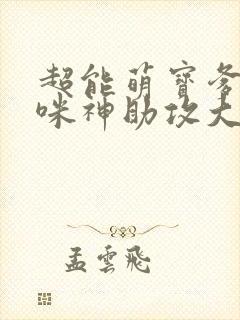 超能萌寶爹
咪神助攻大
孟雲飛